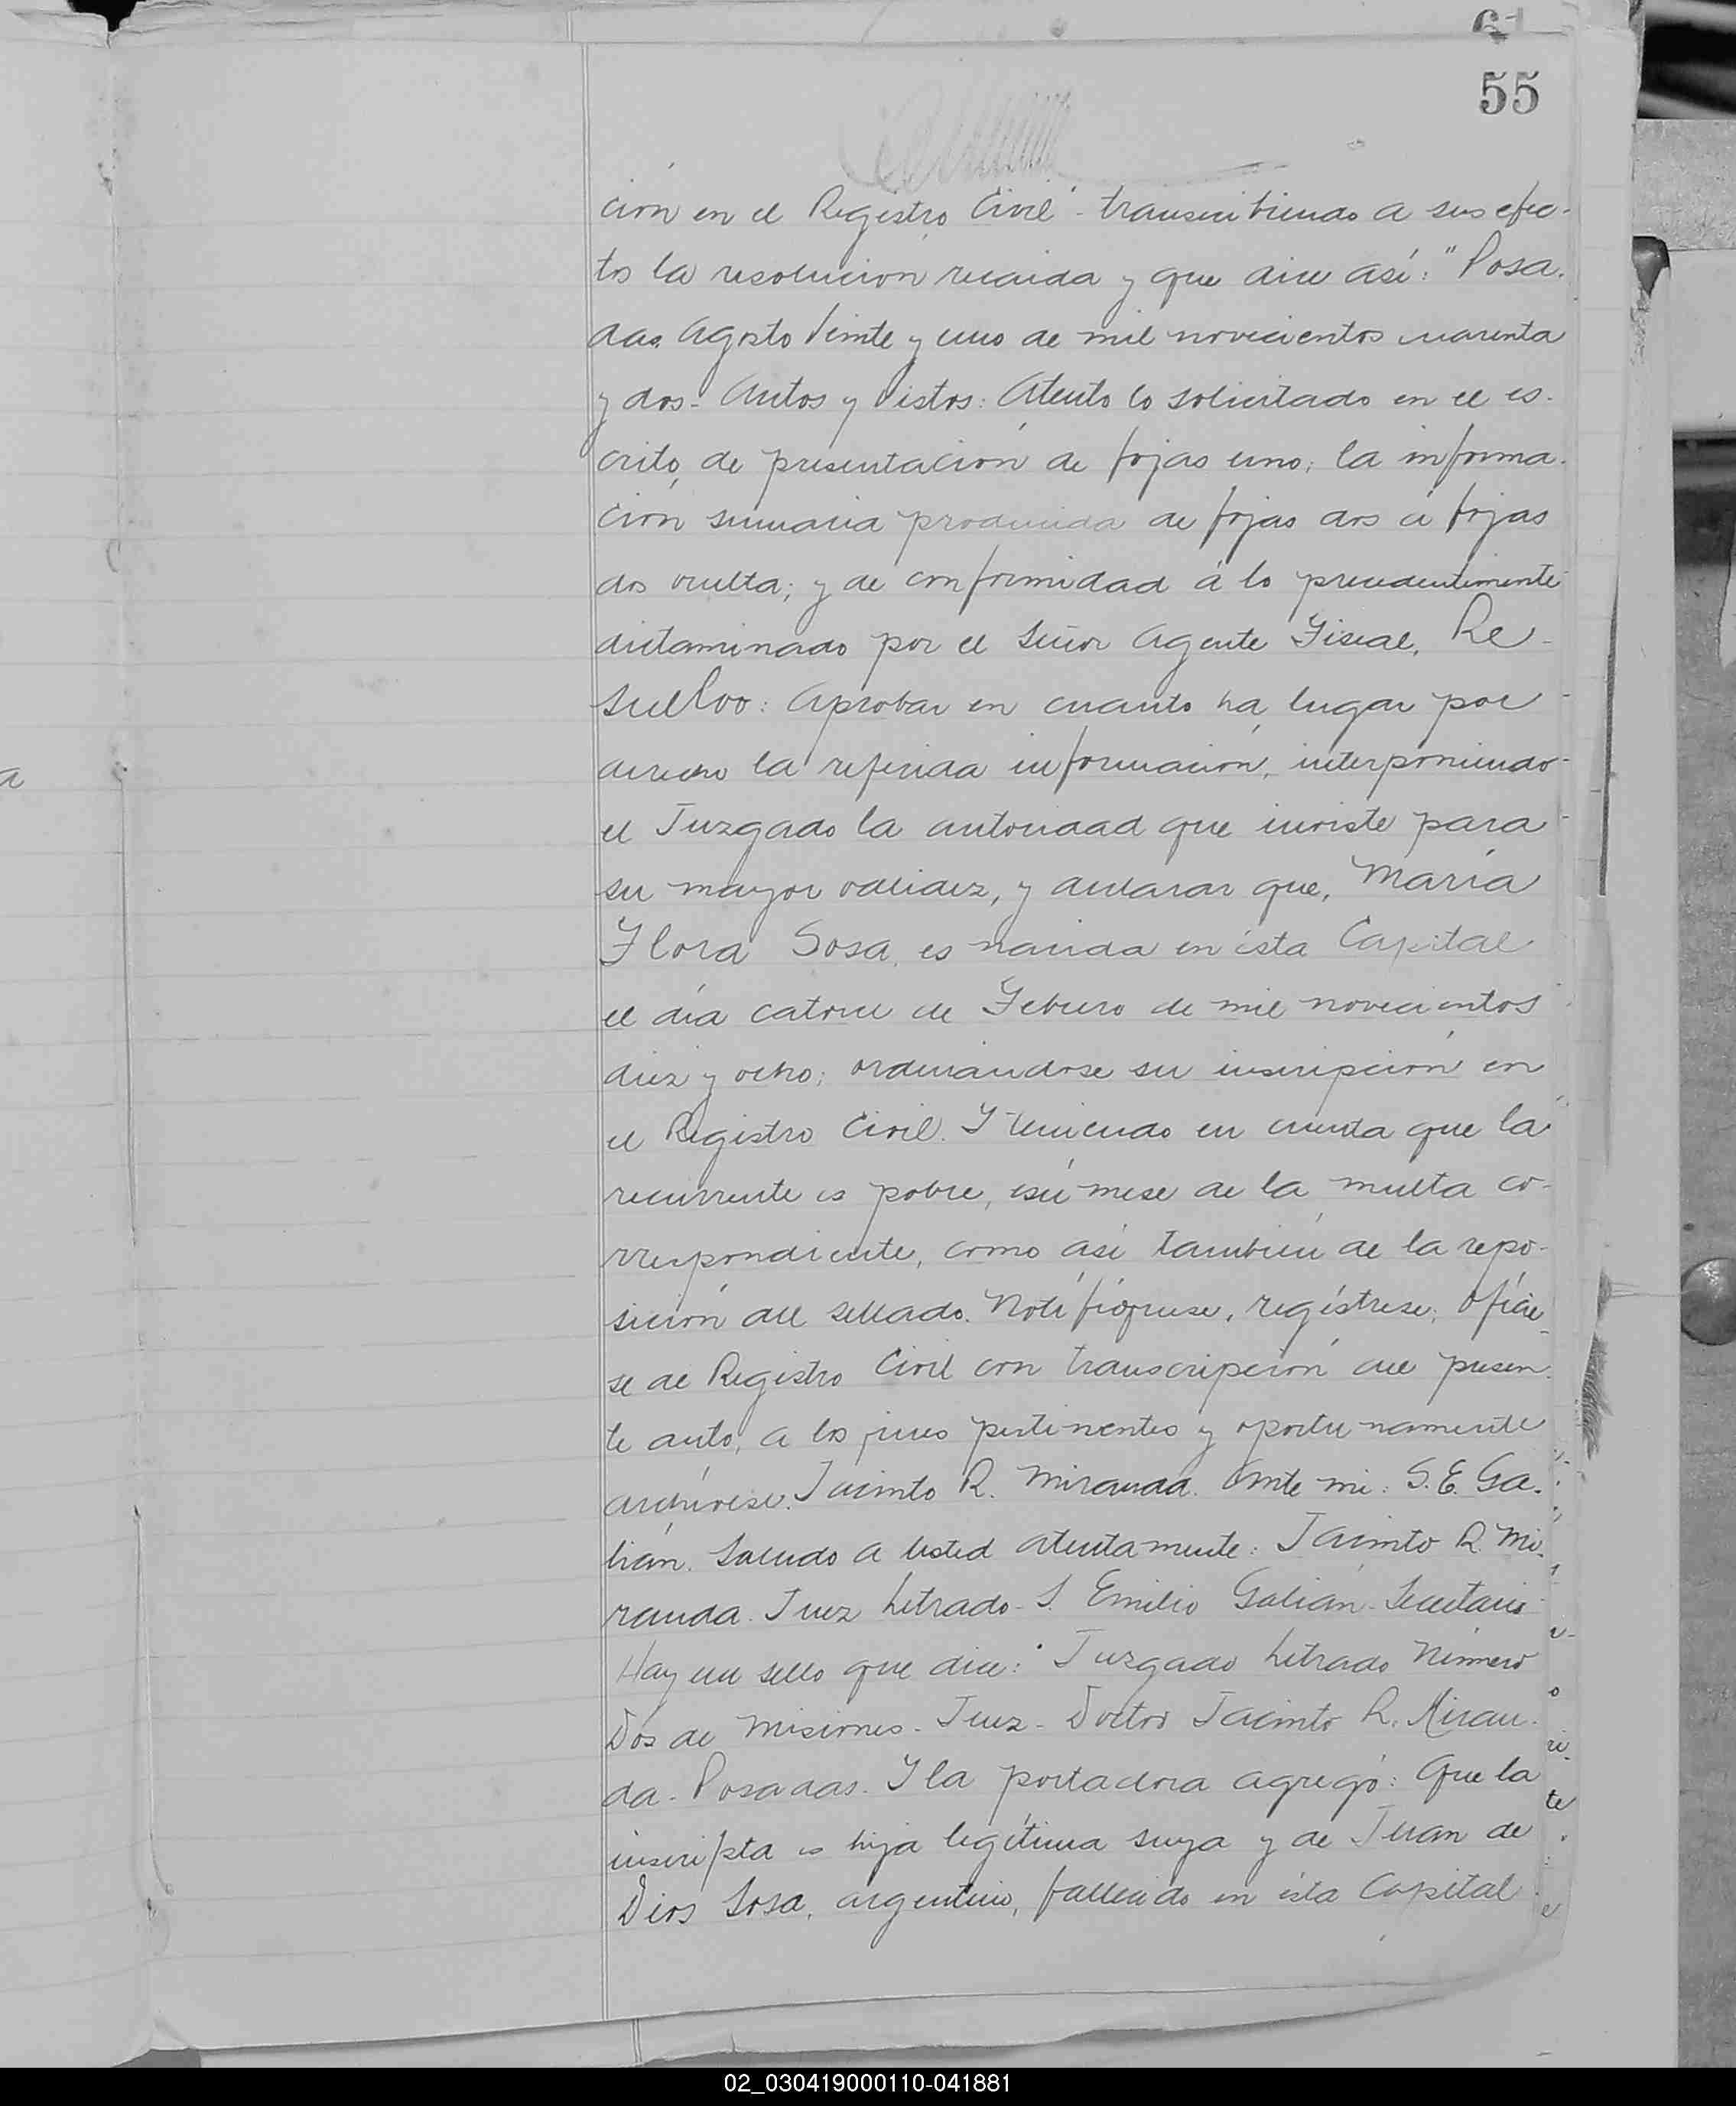 61
55
ción en el Registro Civil" - transcribiendo a sus efec-
tos la resolucion recaida y que dice así: "Posa-
das, Agosto Veinte y uno de mil novecientos cuarenta
y dos - Autos y Vistos: Atento lo solicitado en el es-
crito, de presentación de fojas uno; la informa-
ción sumaria producida de fojas dos á fojas
dos vuelta; y de conformidad á lo precedentemente
dictaminado por el Señor Agente Fiscal, Re-
suelvo: Aprobar en cuanto ha lugar por
derecho la referida información, interponiendo
el Juzgado la autoridad que inviste para
su mayor validez, y declarar que, María
Flora Sosa, es nacida en ésta Capital
el día catorce de Febrero de mil novecientos
diez y ocho; ordenándose su inscripción en
el Registro Civil. Y teniendo en cuenta que la
recurrente es pobre, exímese de la multa co-
rrespondiente, como así también de la repo-
sición del sellado. Notifíquese, regístrese, ofície-
se al Registro Civil con transcripción del presen-
te auto, a los fines pertinentes y oportunamente
archívese. Jacinto R. Miranda. Ante mi: S. E. Ga-
lián. Saludo a Usted atentamente: Jacinto R. Mi-
randa. Juez Letrado - S. Emilio Galián - Secretario
Hay un sello que dice: "Juzgado Letrado Número
Dos de Misiones - Juez - Doctor Jacinto R. Miran-
da - Posadas. Y la portadora agregó: Que la
inscripta es hija legítima suya y de Juan de
Dios Sosa, argentino, fallecido en ésta Capital
02_030419000110-041881